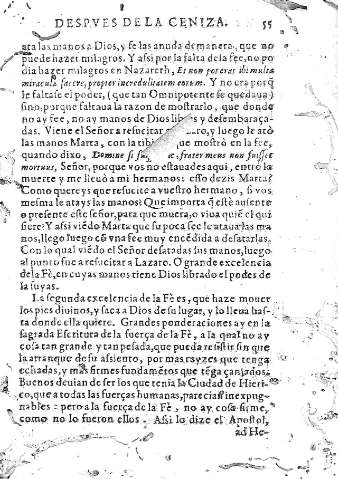 DESPVES DE LA CENIZA. 55
ata las manos a Dios, y se las anuda de manera, que no
puede hazer milagros. Y assi por la falta de la fee, no po
dia hazer milagros en Nazareth, Et non poterat ibi multa
miracula facere, propter incredulitatem eorum. Y no era porq̃
le faltasse el poder, (que tan Omnipotente se quedaua)
sino, porque faltaua la razon de mostrarlo, que donde
no ay fee, no ay manos de Dios libres y desembaraça-
das. Viene el Señor a resucitar a , y luego le atò
las manos Marta, con la que mostrò en la fee,
quando dixo, Domine si frater meus non fuisset
mortuus, Señor, porque vos no estuades aqui, entrò la
muerte y me lleuò a mi hermano: esso dezis Marta?
Como quereys que resucite a vuestro hermano, si vos
mesma le atays las manos? Que importa q̃ estè ausente
o presente este señor, para que muera, o viua quiē el qui
siere? Y assi viēdo Marta que su poca fee le ataua las ma
nos, llego luego cō vna fee muy encēdida a desatarlas.
Con lo qual viēdo el Señor desatadas sus manos, luego
al punto fue a resucitar a Lazaro. O grande excelencia
de la Fè, en cuyas manos tiene Dios librado el poder de
las suyas.
La segunda excelencia de la Fè es, que haze mouer
los pies diuinos, y saca a Dios de su lugar, y lo lleua has-
ta donde ella quiere. Grandes ponderaciones ay en la
sagrada Escritura de la fuerça de la Fè, a la qual no ay
cosa tan grande y tan pesada, que pueda resistir sin que
la arranque de su assiento, por mas rayzes que tenga
echadas, y mas firmes fundamētos que tēga çanjados.
Buenos deuian de ser los que tenia la Ciudad de Hieri-
co, que a todas las fuerças humanas, parecian inexpug-
nables: pero a la fuerça de la Fè, no ay cosa firme,
como no lo fueron ellos. Assi lo dize el Apostol,
ad He-